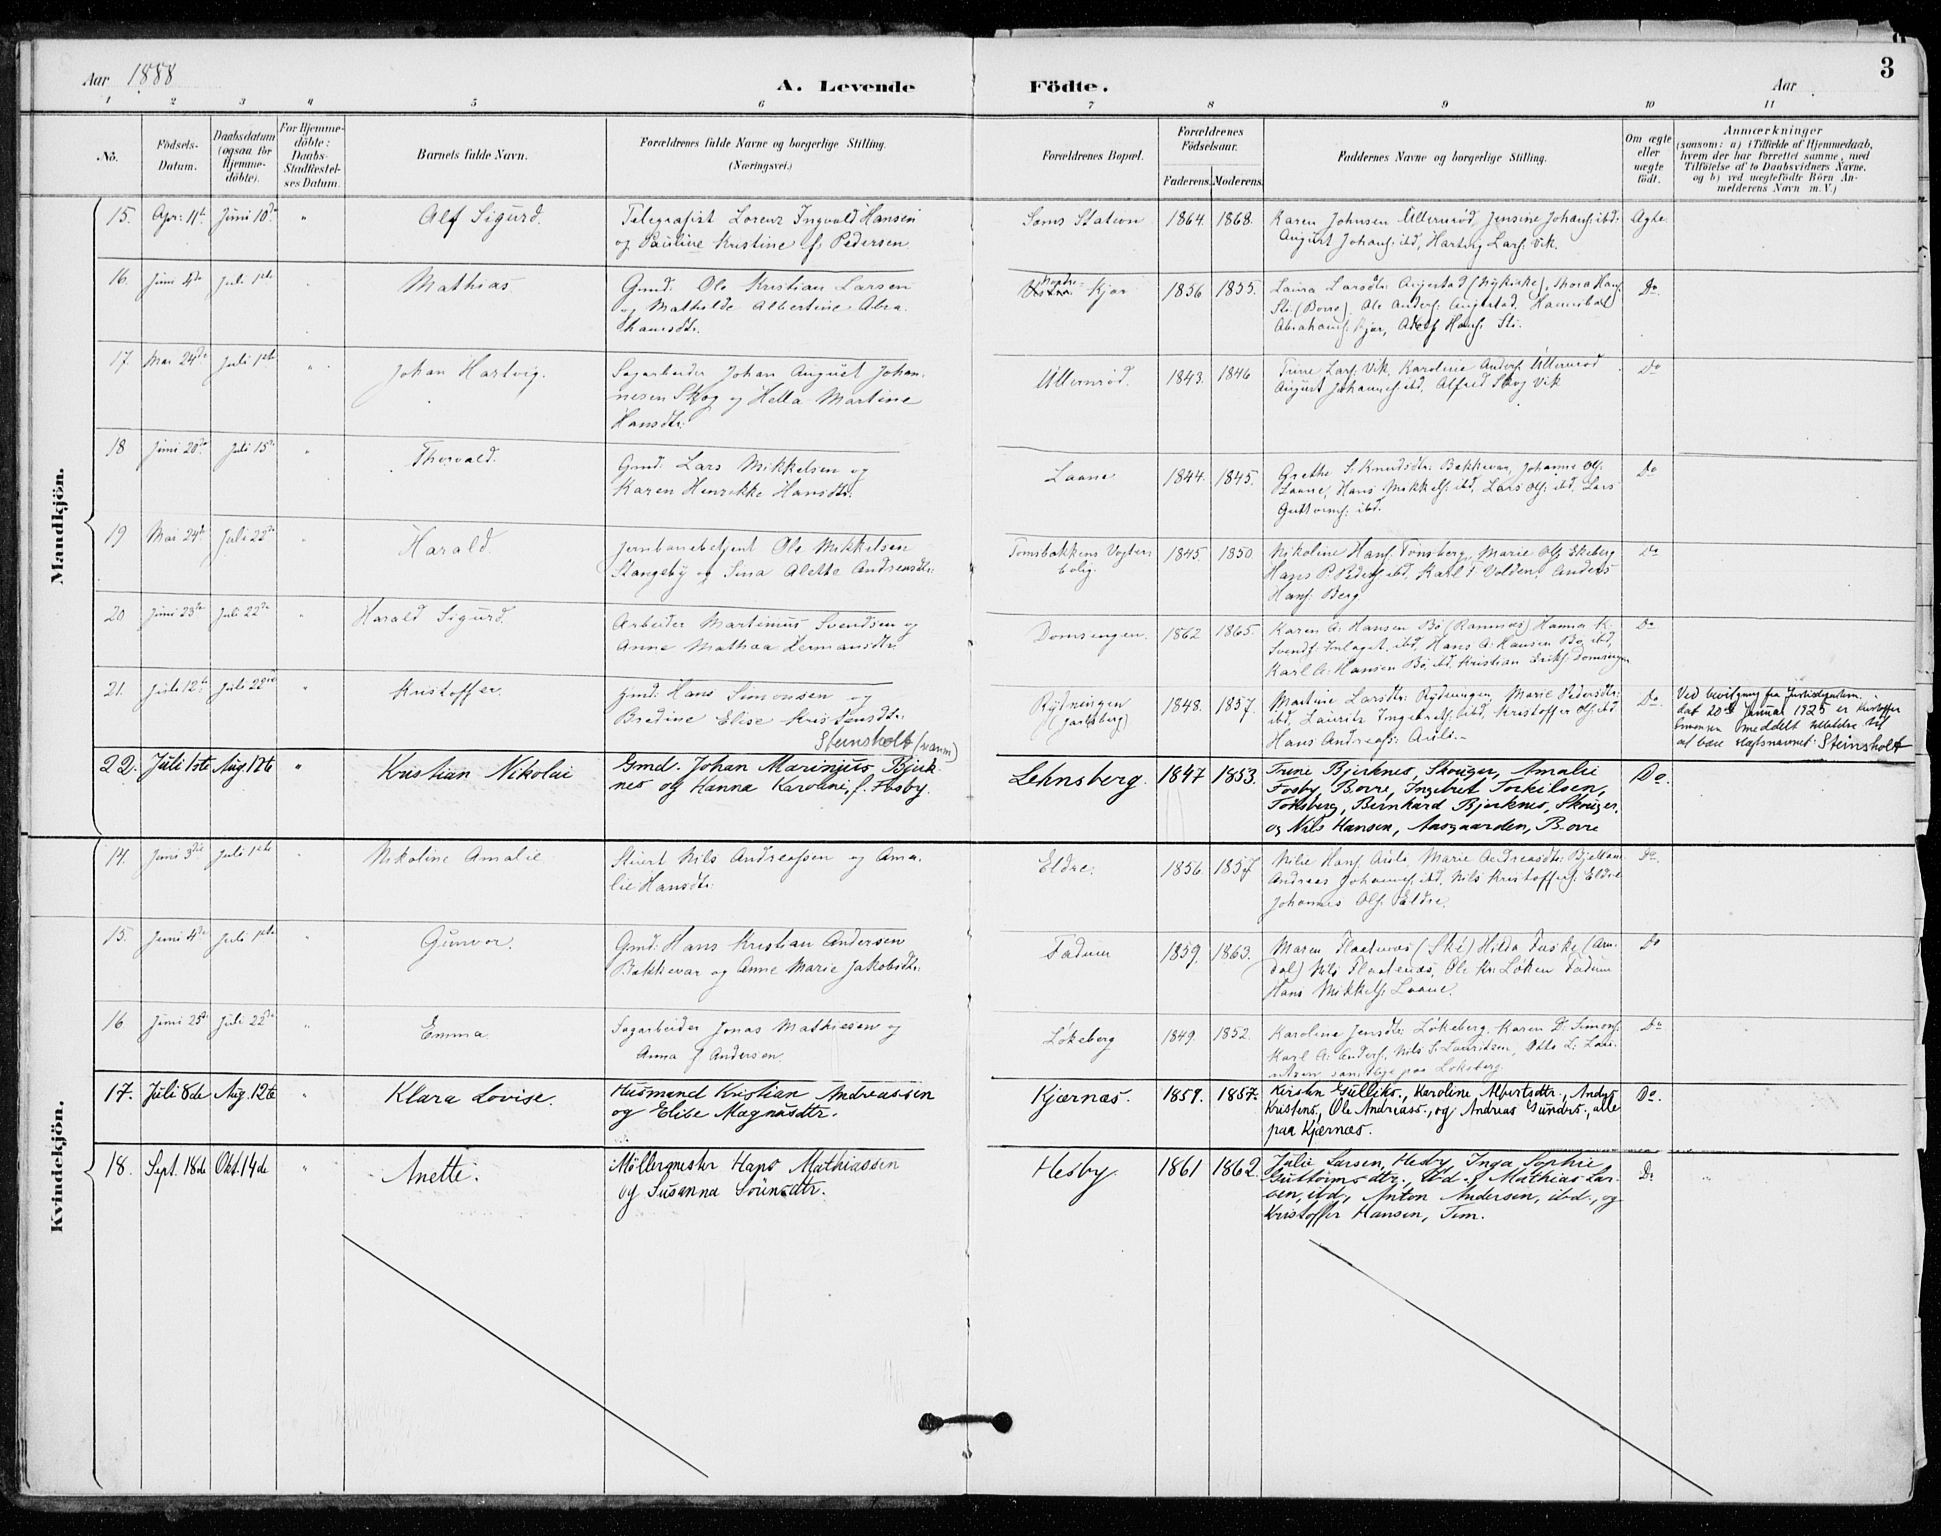 Aar 1888
A. Levende Födte.
Aar
3
1 2 3 4 5 6 7 8 9 10 11
No.
Födsels-Datum.
Daabsdatum (ogsaa for Hjemme-döbte).
For Hjemme-döbte: Daabs-Stadfæstel-ses Datum.
Barnets fulde Navn.
Forældrenes fulde Navne og borgerlige Stilling. (Næringsvei.)
Forældrenes Bopæl.
Forældrenes Födselsaar.
Faderens. Moderens.
Faddernes Navne og borgerlige Stilling.
Om ægte eller uægte födt.
Anmærkninger
(saasom: a) i Tilfælde af Hjemmedaab,
hvem der har forrettet samme, med
Tilföielse af to Daabsvidners Navne.
og b) ved uægtefödte Börn An-
melderens Navn m. V.)
Mandkjön.
15. Apr: 11te Juni 10de " Alf Sigurd. Telegrafist Lorenz Ingvald Hansen Sems Station 1864. 1868. Karen Johnsen Ullernrød, Jensine Johans: ibd: Ægte
og Pauline Kristine f. Pedersen August Johans: ibd, Hartvig Lars: Vik.
16. Juni 4de Juli 1ste Mathias Gmd. Ole Kristian Larsen Nordre Kjær 1856 1855. Laura Larsdtr: Augestad (Nykirke), Thora Hans:
og Mathilde Albertine Abra- Sti (Borre). Ole Anders: Augestad. Hannibal Do
hamsdtr. Abrahams: Kjær, Adolf Hans: Sti.
17. Mai 24de Juli 1ste " Johan Hartvig. Sagarbeider Johan August Johan- Ullernrød. 1843. 1846 Trine Lars: Vik, Karoline Anders: Ullernrød Do
nesen Skog og Hella Martine August Johannes: ibd, Alfred Skog Vik
Hansdtr:
18 Juni 20de Juli 15de " Thorvald. Gmd. Lars Mikkelsen og Laane 1844. 1845. Grethe S. Knudsdtr: Bakkevar, Johanne Ols: Do
Karen Henrikke Hansdtr. Laane, Hans Mikkels: ibd, Lars Ols: ibd, Lars
Guttorms: ibd.
19 Mai 24de Juli 22de " Harald Jernbanebetjent Ole Mikkelsen Tomsbakkens Vogter- 1845. 1850. Nikoline Hans: Tønsberg, Marie Ols: Ekeberg Do
Stangeby og Sina Alette Andreasdtr: bolig. Hans P. Peders: ibd, Karl T. Volden, Anders
Hans: Berg
20 Juni 23de Juli 22de " Harald Sigurd. Arbeider Martinius Svendsen og Domsengen. 1862 1865. Karen A: Hansen Bø (Ramnes) Hanna K. Do
Anne Mathea Hermansdtr: Svends: Inlaget ibd, Hans A: Hansen Bø ibd,
Karl A: Hansen Bø ibd, Kristian Eriks: Domsengen
21. Juli 12te Juli 22de " Kristoffer. Gmd: Hans Simonsen og Rydningen 1848. 1857. Martine Larsdtr: Rydningen, Marie Pedersdtr: Do
Bredine Elise Kristensdtr: (Jarlsberg) ibd, Lauritz Ingebrets: ibd, Kristoffer Ols: ibd
Steinsholt (navn) Hans Andreas: Auli.-
Ved bevilgning fra Justisdepartem.
dat 20de Januar 1925 er Kristoffer
Simonsen meddelt tilladelse til
at bære slegtsnavnet: Steinsholt
22. Juli 1ste Aug. 12te " Kristian Nikolai Gmd. Johan Marinius Bjerk- Lehnsberg. 1847 1853. Trine Bjerknes, Skouger, Amalie Do.
nes og Hanna Karoline, f. Fosby. Fosby, Borre, Ingebret Torkilsen,
Tønsberg, Bernhard Bjerknes, Skouger,
og Nils Hansen, Aasgaarden, Borre
Kvindekjön.
14. Juni 3die Juli 1ste Nikoline Amalie Skrivt Nils Andreassen og Ama- Eldre: 1856. 1857 Nilia Hans: Auli, Marie Andreasdtr: Do.
lie Hansdtr: Andreas Johannes: ibd, Nils Kristoffers: Eldre
Johannes Ols: Eldre.
15. Juni 4de Juli 1ste " Gunvor. Gmd: Hans Kristian Andersen Fadum 1859. 1863. Maren Flaatenes (Ski) Hilda Faske (Am- Do
Bakkevar og Anne Marie Jakobsdtr: dal) Nils Flaatenes, Ole Kr: Løken Fadum
Hans Mikkels: Laane.
16. Juni 25de Juli 22de " Emma Sagarbeider Jonas Mathiesen og Løkeberg 1849. 1852. Karoline Jensdtr: Løkeberg, Karen D. Simons: Do
Anna f Andersen Karl A: Anders: Nils S. Lauritsen, Otto L: Lau-
samtlige paa Løkeberg
17. Juli 8de Aug. 12te " Klara Lovise. Husmand Kristian Andreassen Kjærnæs. 1859. 1857. Kirsten Gulliks., Karoline Albertsdtr., Andr. Do.
og Elise Magnusdtr. Kristens, Ole Andreass., og Andreas Gunders., alle
paa Kjærnæs.
18. Sept. 18de Okt. 14de " Anette. Möllermester Hans Mathiassen Hesby 1861 1862. Julie Larsen, Hesby, Inga Sophie Do "
og Susanna Sörensdtr. Guttormsdtr., ibd., Mathias Lar-
sen, ibd, Anton Andersen, ibd., og
Kristoffer Hansen, Tem.